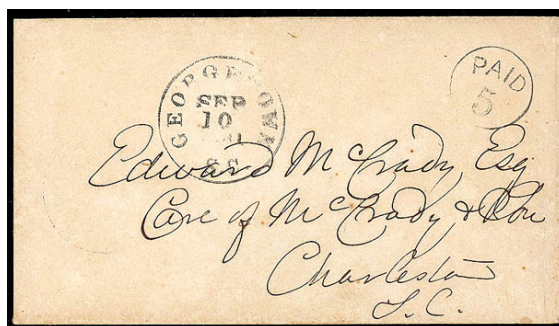 GEORGETOWN
SEP
10
S.C.
PAID
5
Edward McCrady, Esq
Care of McCrady & Son
Charleston
S.C.